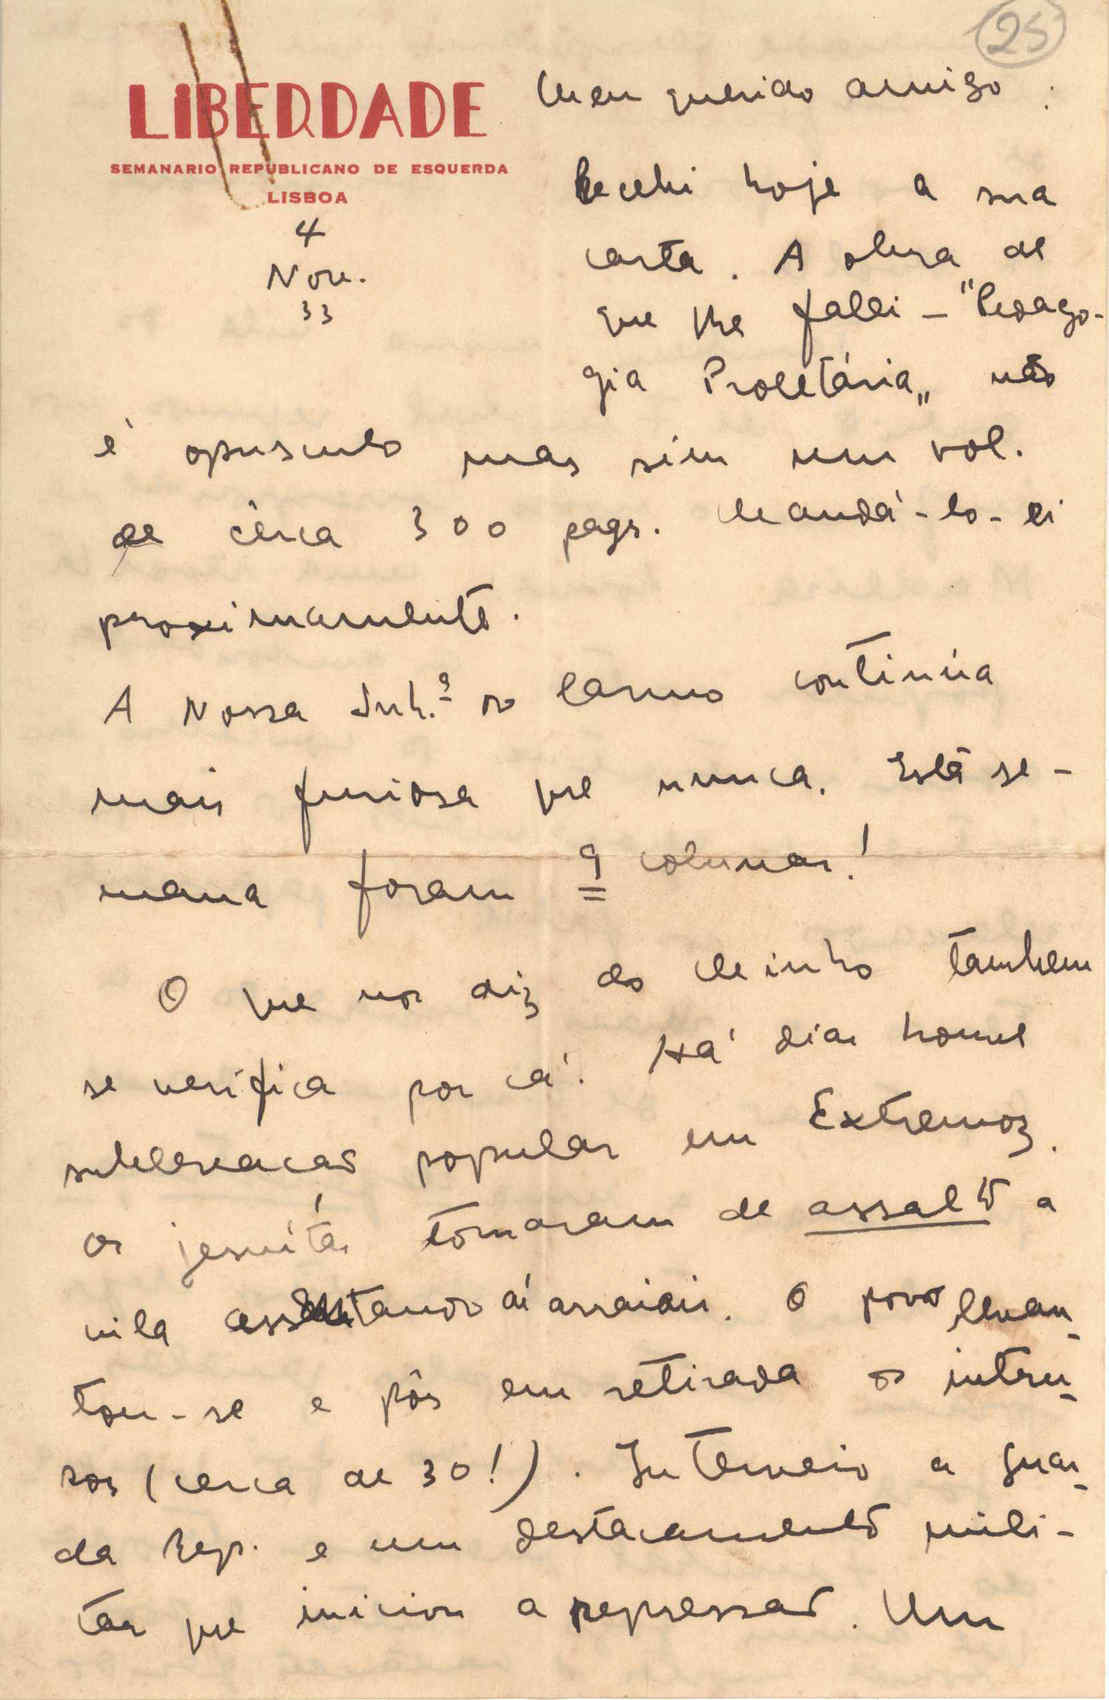 25
LIBERDADE
SEMANARIO REPUBLICANO DE ESQUERDA
LISBOA
4
Nov.
33
Meu querido amigo:
Recebi hoje a sua
carta. A obra de
que lhe fallei - "Pedago-
gia Proletária" não
é opusculo mas sim um vol.
de cêrca 300 pags. Mandá-lo-ei
proximamente.
A Nossa Snh.ª do Carmo continúa
mais furiosa que nunca. Está se-
mana foram 9 colunas!
O que nos diz do Minho tambem
se verífica por cá. Há dias houve
sublevação popular em Extremoz.
Os jesuítas tomaram de assalto a
vila assentando aí arraiais. O povo levan-
tou-se e pôs em retirada os intru-
sos (cerca de 30!). Interveio a Guar-
da Rep. e um destacamento mili-
tar que iniciou a repressão. Um